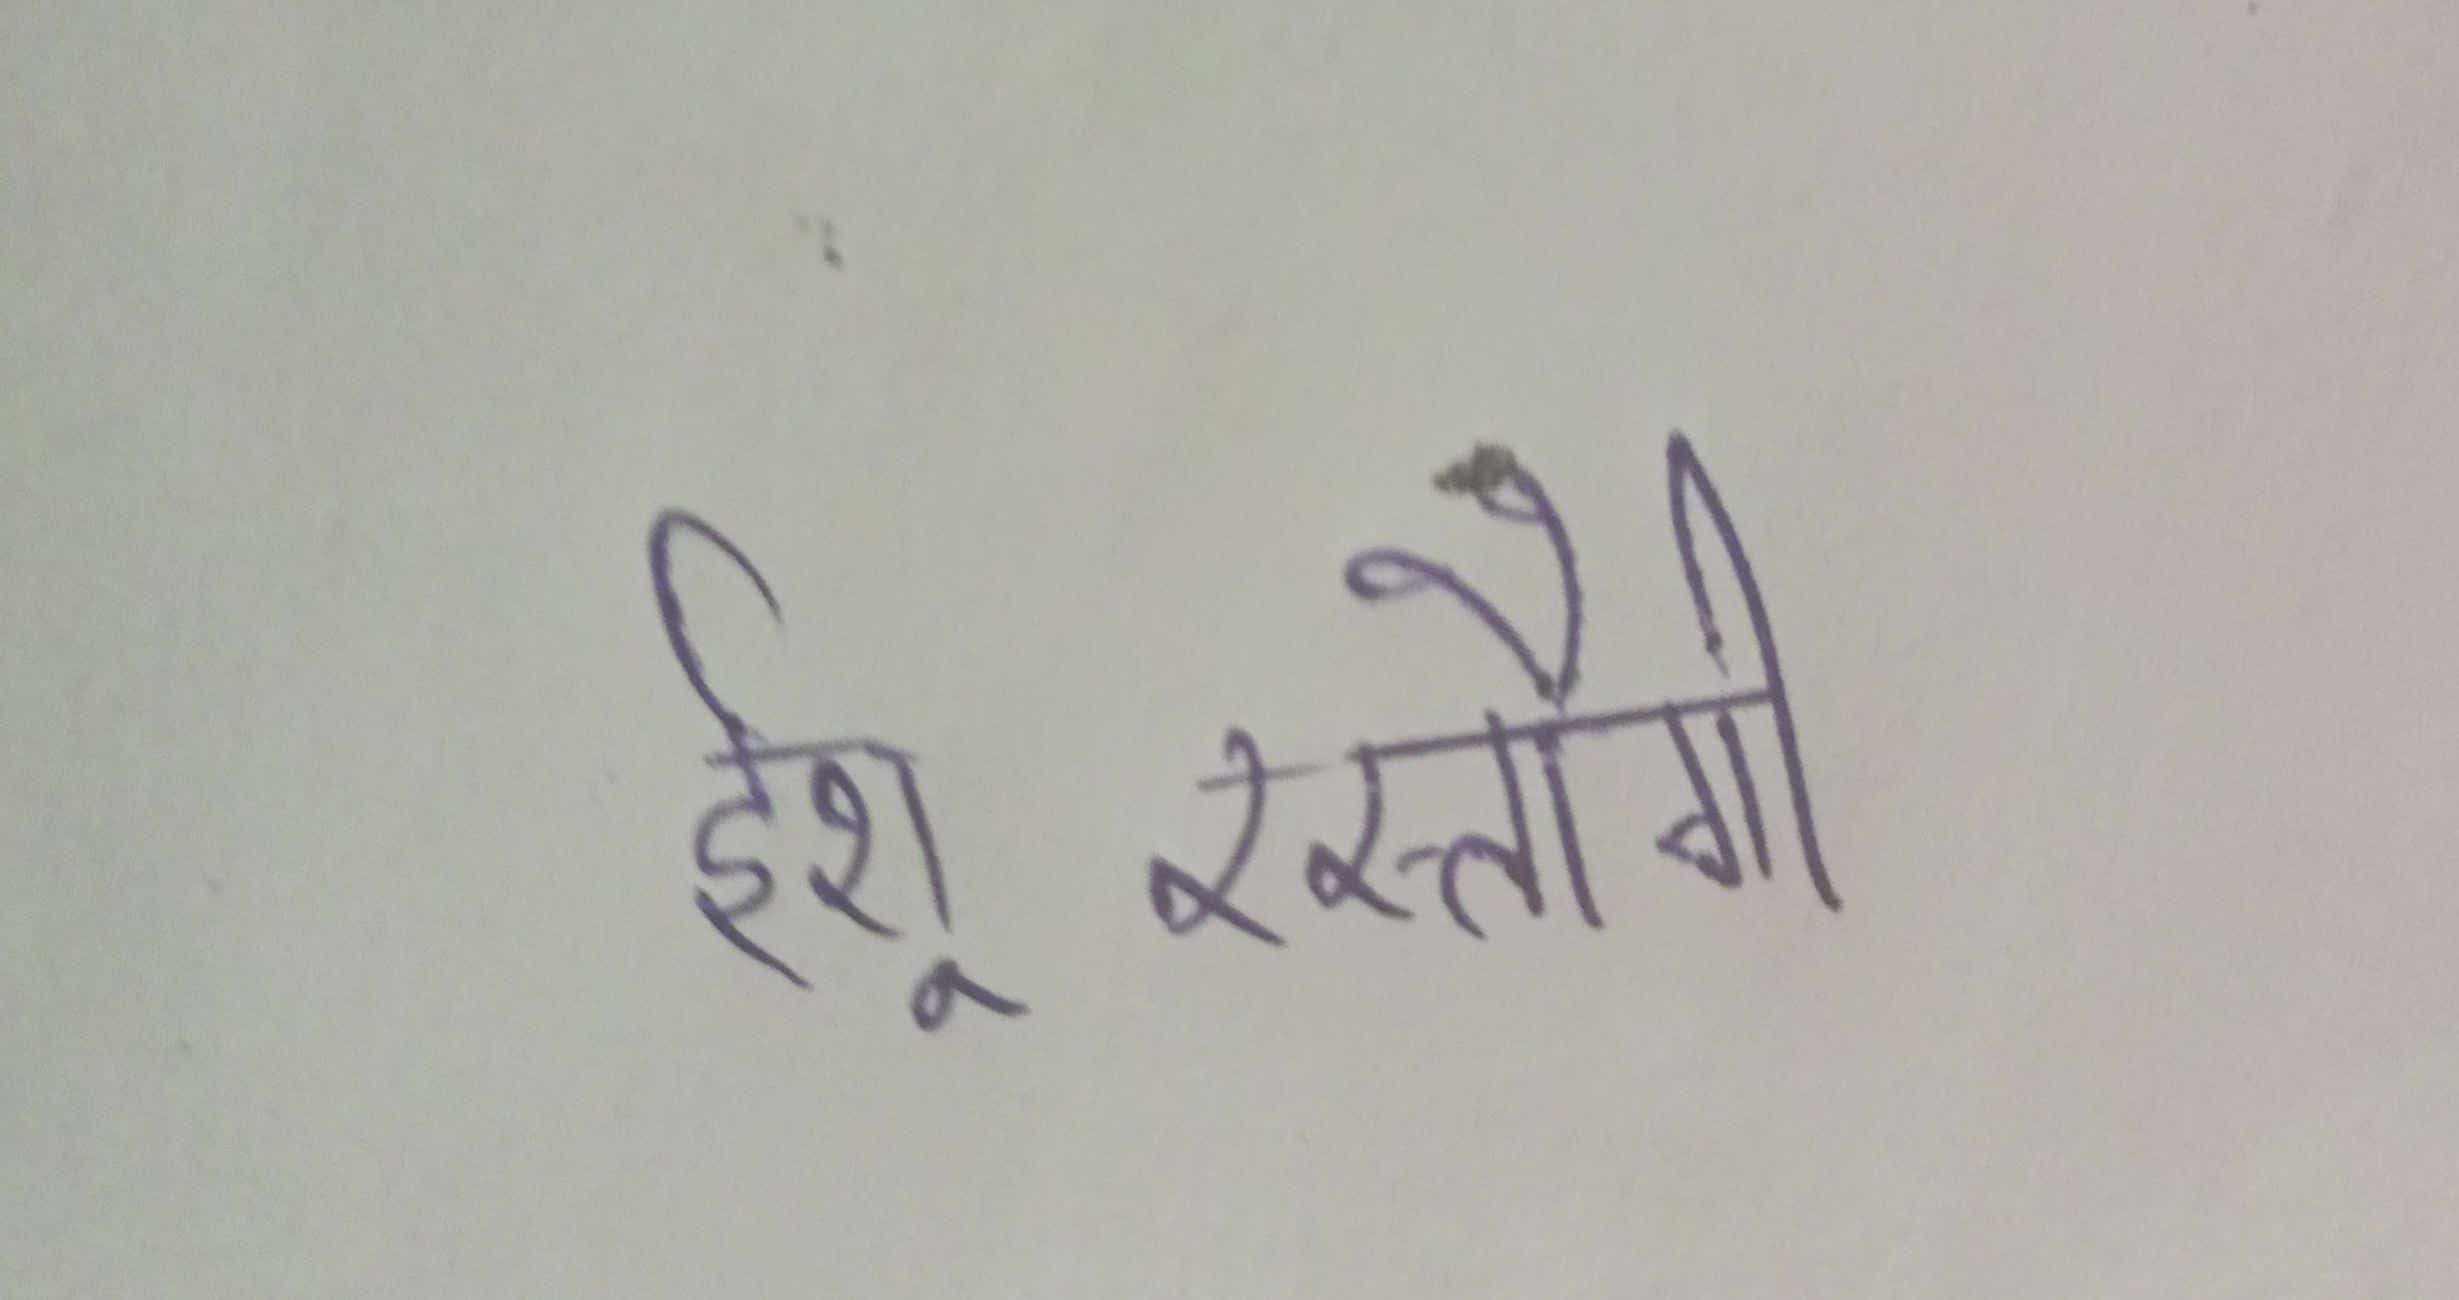 ईशू रस्तौगी